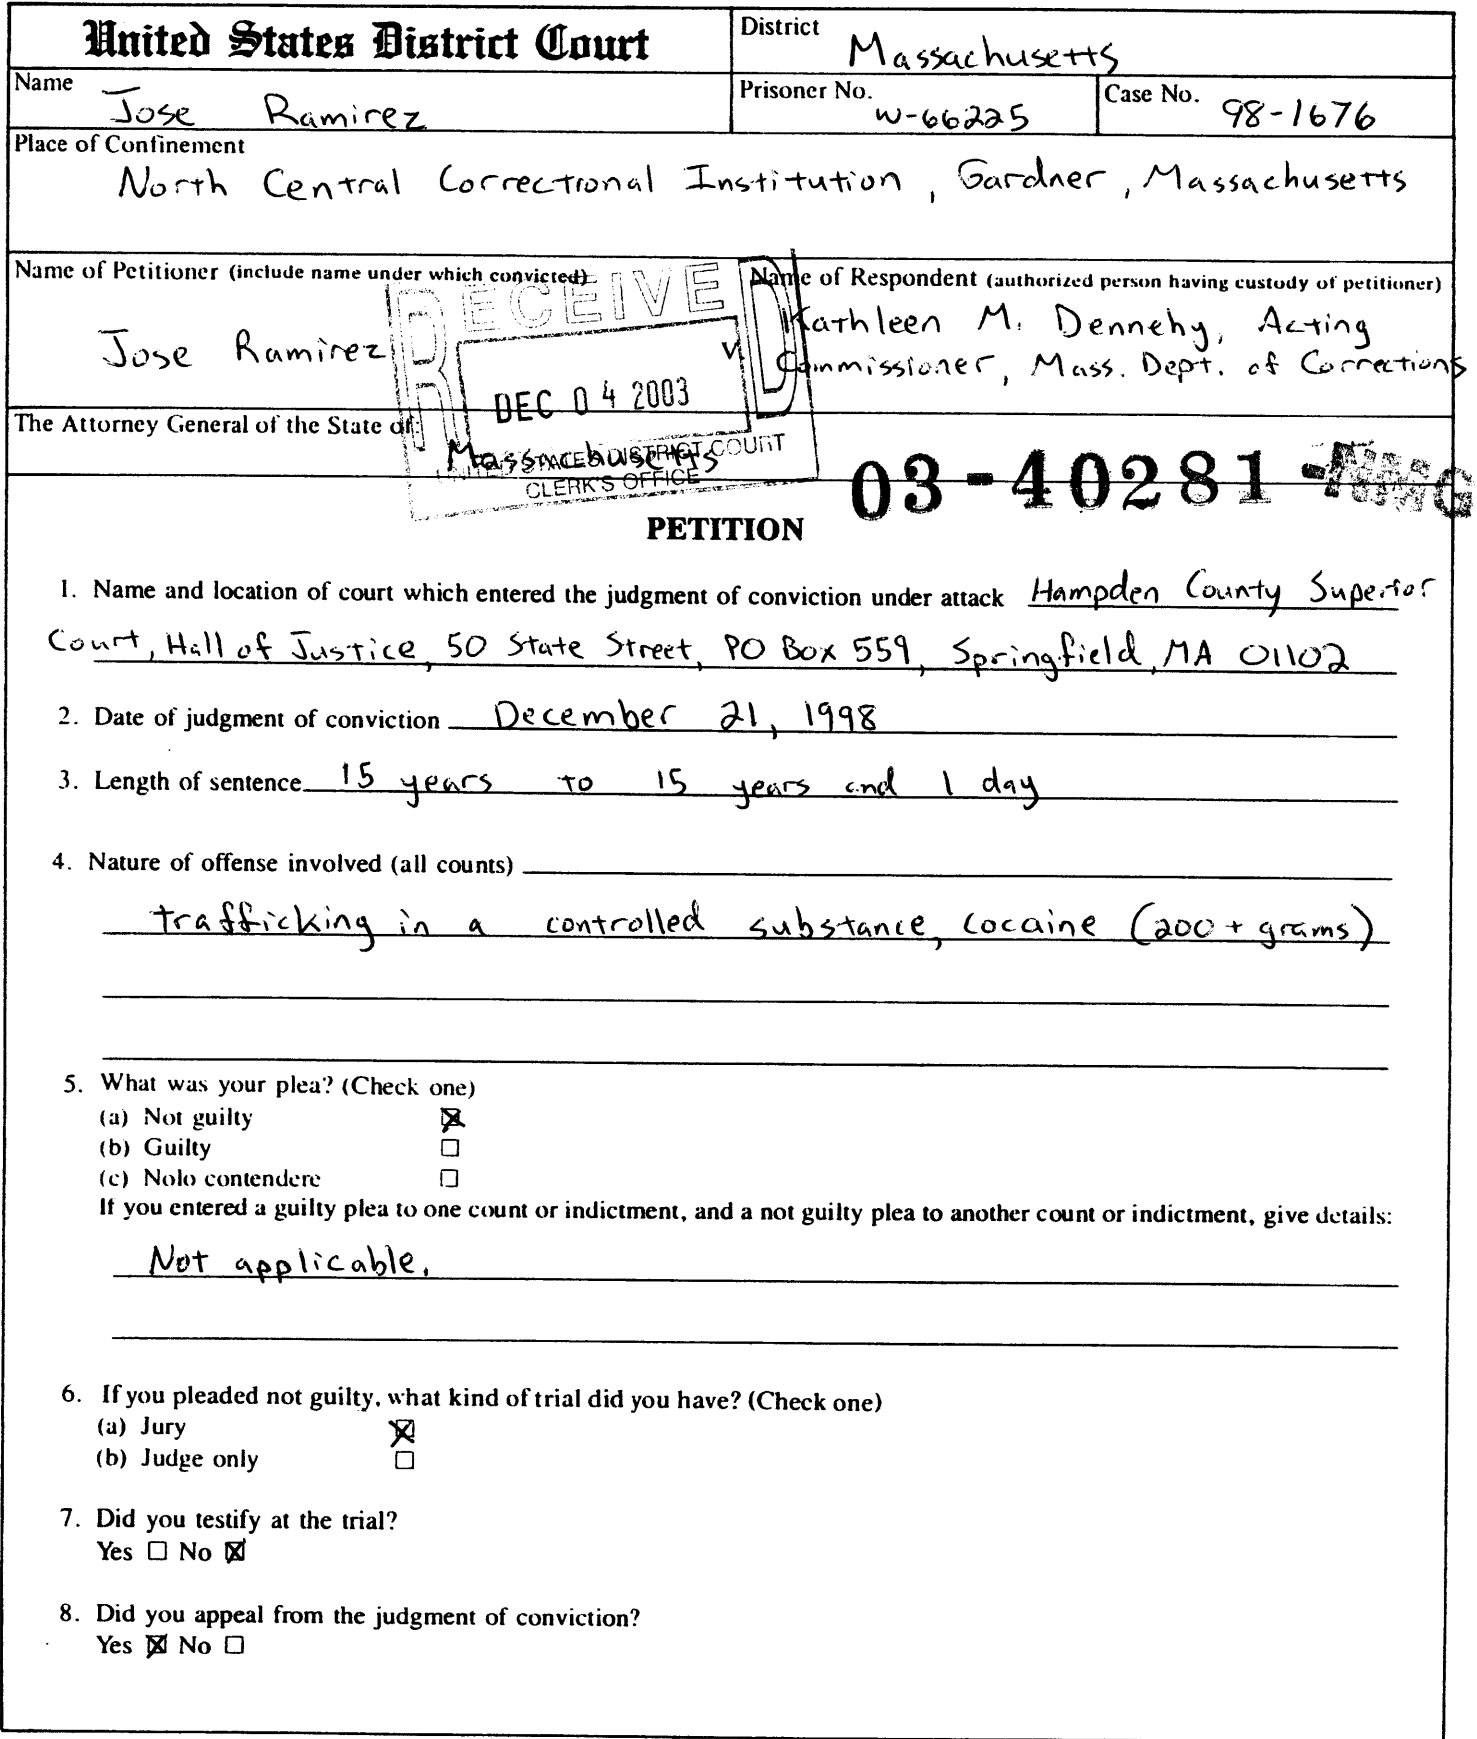 United States District Court
District
Massachusetts
Name
Jose Ramirez
Prisoner No.
W-66225
Case No.
98-1676
Place of Confinement
North Central Correctional Institution, Gardner, Massachusetts
Name of Petitioner (include name under which convicted)
Jose Ramirez
v.
Name of Respondent (authorized person having custody of petitioner)
Kathleen M. Dennehy, Acting
Commissioner, Mass. Dept. of Corrections
RECEIVED
DEC 04 2003
UNITED STATES DISTRICT COURT
CLERK'S OFFICE
The Attorney General of the State of:
Massachusetts
03-40281-NMG
PETITION
1. Name and location of court which entered the judgment of conviction under attack Hampden County Superior
Court, Hall of Justice, 50 State Street, PO Box 559, Springfield, MA 01102
2. Date of judgment of conviction December 21, 1998
3. Length of sentence 15 years to 15 years and 1 day
4. Nature of offense involved (all counts)
trafficking in a controlled substance, cocaine (200+ grams)
5. What was your plea? (Check one)
(a) Not guilty ☒
(b) Guilty ☐
(c) Nolo contendere ☐
If you entered a guilty plea to one count or indictment, and a not guilty plea to another count or indictment, give details:
Not applicable.
6. If you pleaded not guilty, what kind of trial did you have? (Check one)
(a) Jury ☒
(b) Judge only ☐
7. Did you testify at the trial?
Yes ☐ No ☒
8. Did you appeal from the judgment of conviction?
Yes ☒ No ☐